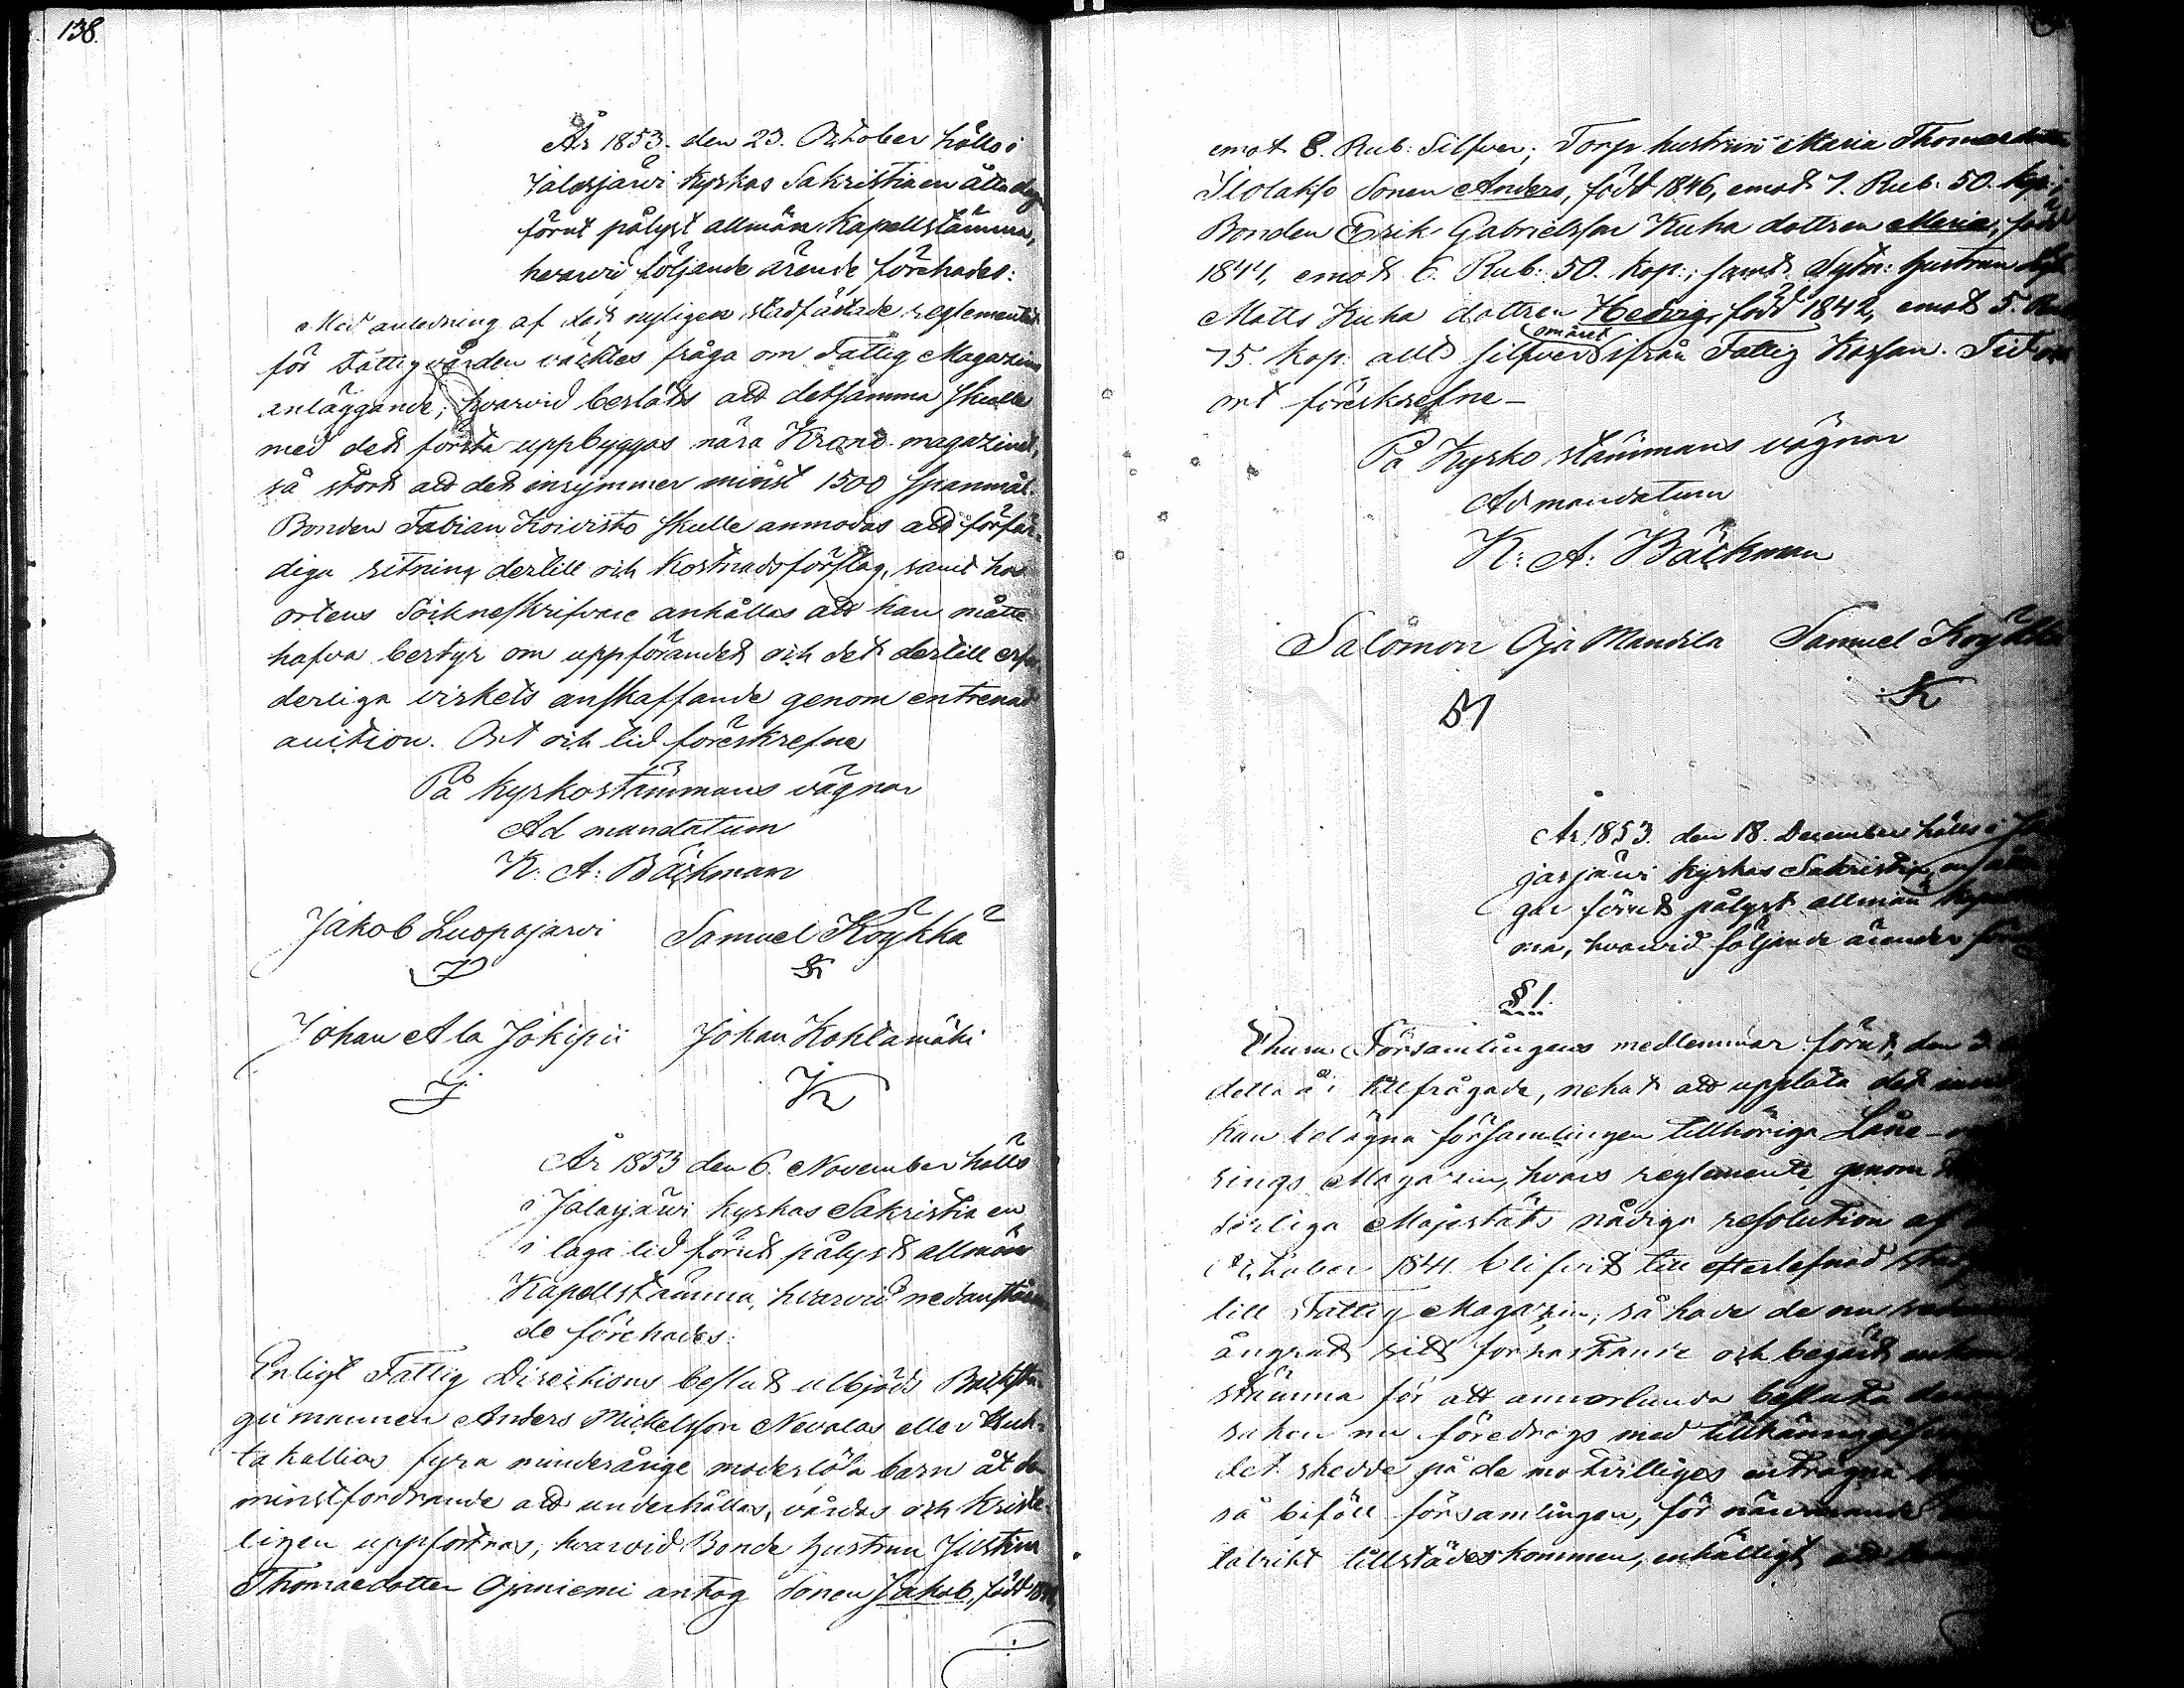 138.
År 1853. den 23. October hölls i
Jalasjärvi Kyrkas Sakristia en åtta dagar
förut pålyst allmän Kapellstämma,
hvarvid följande ärende förehades:
Med anledning af det nyligen stadfästade reglementet
för fattigvården väcktes fråga om Fattig Magazins
anläggande; hvarvid beslöts att detsamma skulle
med det första uppbyggas nära Krono-magazinet,
så stort att det inrymmer minst 1500 spanmål.
Bonden Fabian Koivisto skulle anmodas att förfär-
diga ritning dertill och kostnadsförslag, samt hos
ortens Sockneskrifvare anhållas att han måtte
hafva bestyr om uppförandet och det dertill erfor-
derliga virkets anskaffande genom entrenad
auction. Ort och tid föreskrefne
På Kyrkostämmans vägnar
Ad mandatum
K: A: Bäckman
Jakob Luopajärvi Samuel Köykkä
J K
Johan Ala Jokipii Johan Kohtamäki
J K
År 1853 den 6. November hölls
i Jalasjärvi Kyrkas Sakristia en
i laga tid förut pålyst allmän
Kapellstämma, hvarvid nedanståen-
de förehades:
Enligt Fattig Directions beslut utbjöds Backstu-
gumannen Anders Mickelsson Nevalas eller Huh-
takallios fyra minderårige moderlösa barn åt den
minstfordrande att underhållas, vårdas och Kriste-
ligen uppfostras, hvarvid Bonde hustrun Justina
Thomaedotter Ojaniemi antog Sonen Jakob, född
emot 8. Rub: Silfver; Torp. hustrun Maria Thomaedotter
Ilolakso Sonen Anders, född 1846, emot 7. Rub: 50. kop:;
Bonden Erik Gabrielsson Kuha dottren Maria, född
1844, emot 6. Rub: 50. kop:; samt Sytn: hustrun
Matts Kuha dottren Hedvig, född 1842, emot 5. Rub:
75. kop: allt silfver omåret ifrån Fattig Kassan. Tid och
ort föreskrefne —
På Kyrko stämmans vägnar
Ad mandatum
K: A: Bäckman
Salomon Oja Mandila Samuel Köykkä
M K
År 1853. den 18. December hölls i
jasjärvi Kyrkas Sakristia, en
gar förut pålyst allmän
ma, hvarvid följande ärender
§ 1.
Ehuru Församlingens medlemmar förut, den
detta år tillfrågade, nekat att upplåta det
kan belägna församlingen tillhöriga Låne-
rings Magazin, hvars reglemente genom
serliga Majestäts nådiga resolution af
October 1841. blifvit till efterlefnad
till Fattig Magazin, så hade de nu
ångrat sitt förkastande och begärt
stämma för att annorlunda besluta
saken nu föredrogs med tillkännagifvande
det skedde på de motvilliges enträgna
så biföll församlingen, för närvarande
talrikt tillstädeskommen, enhälligt att